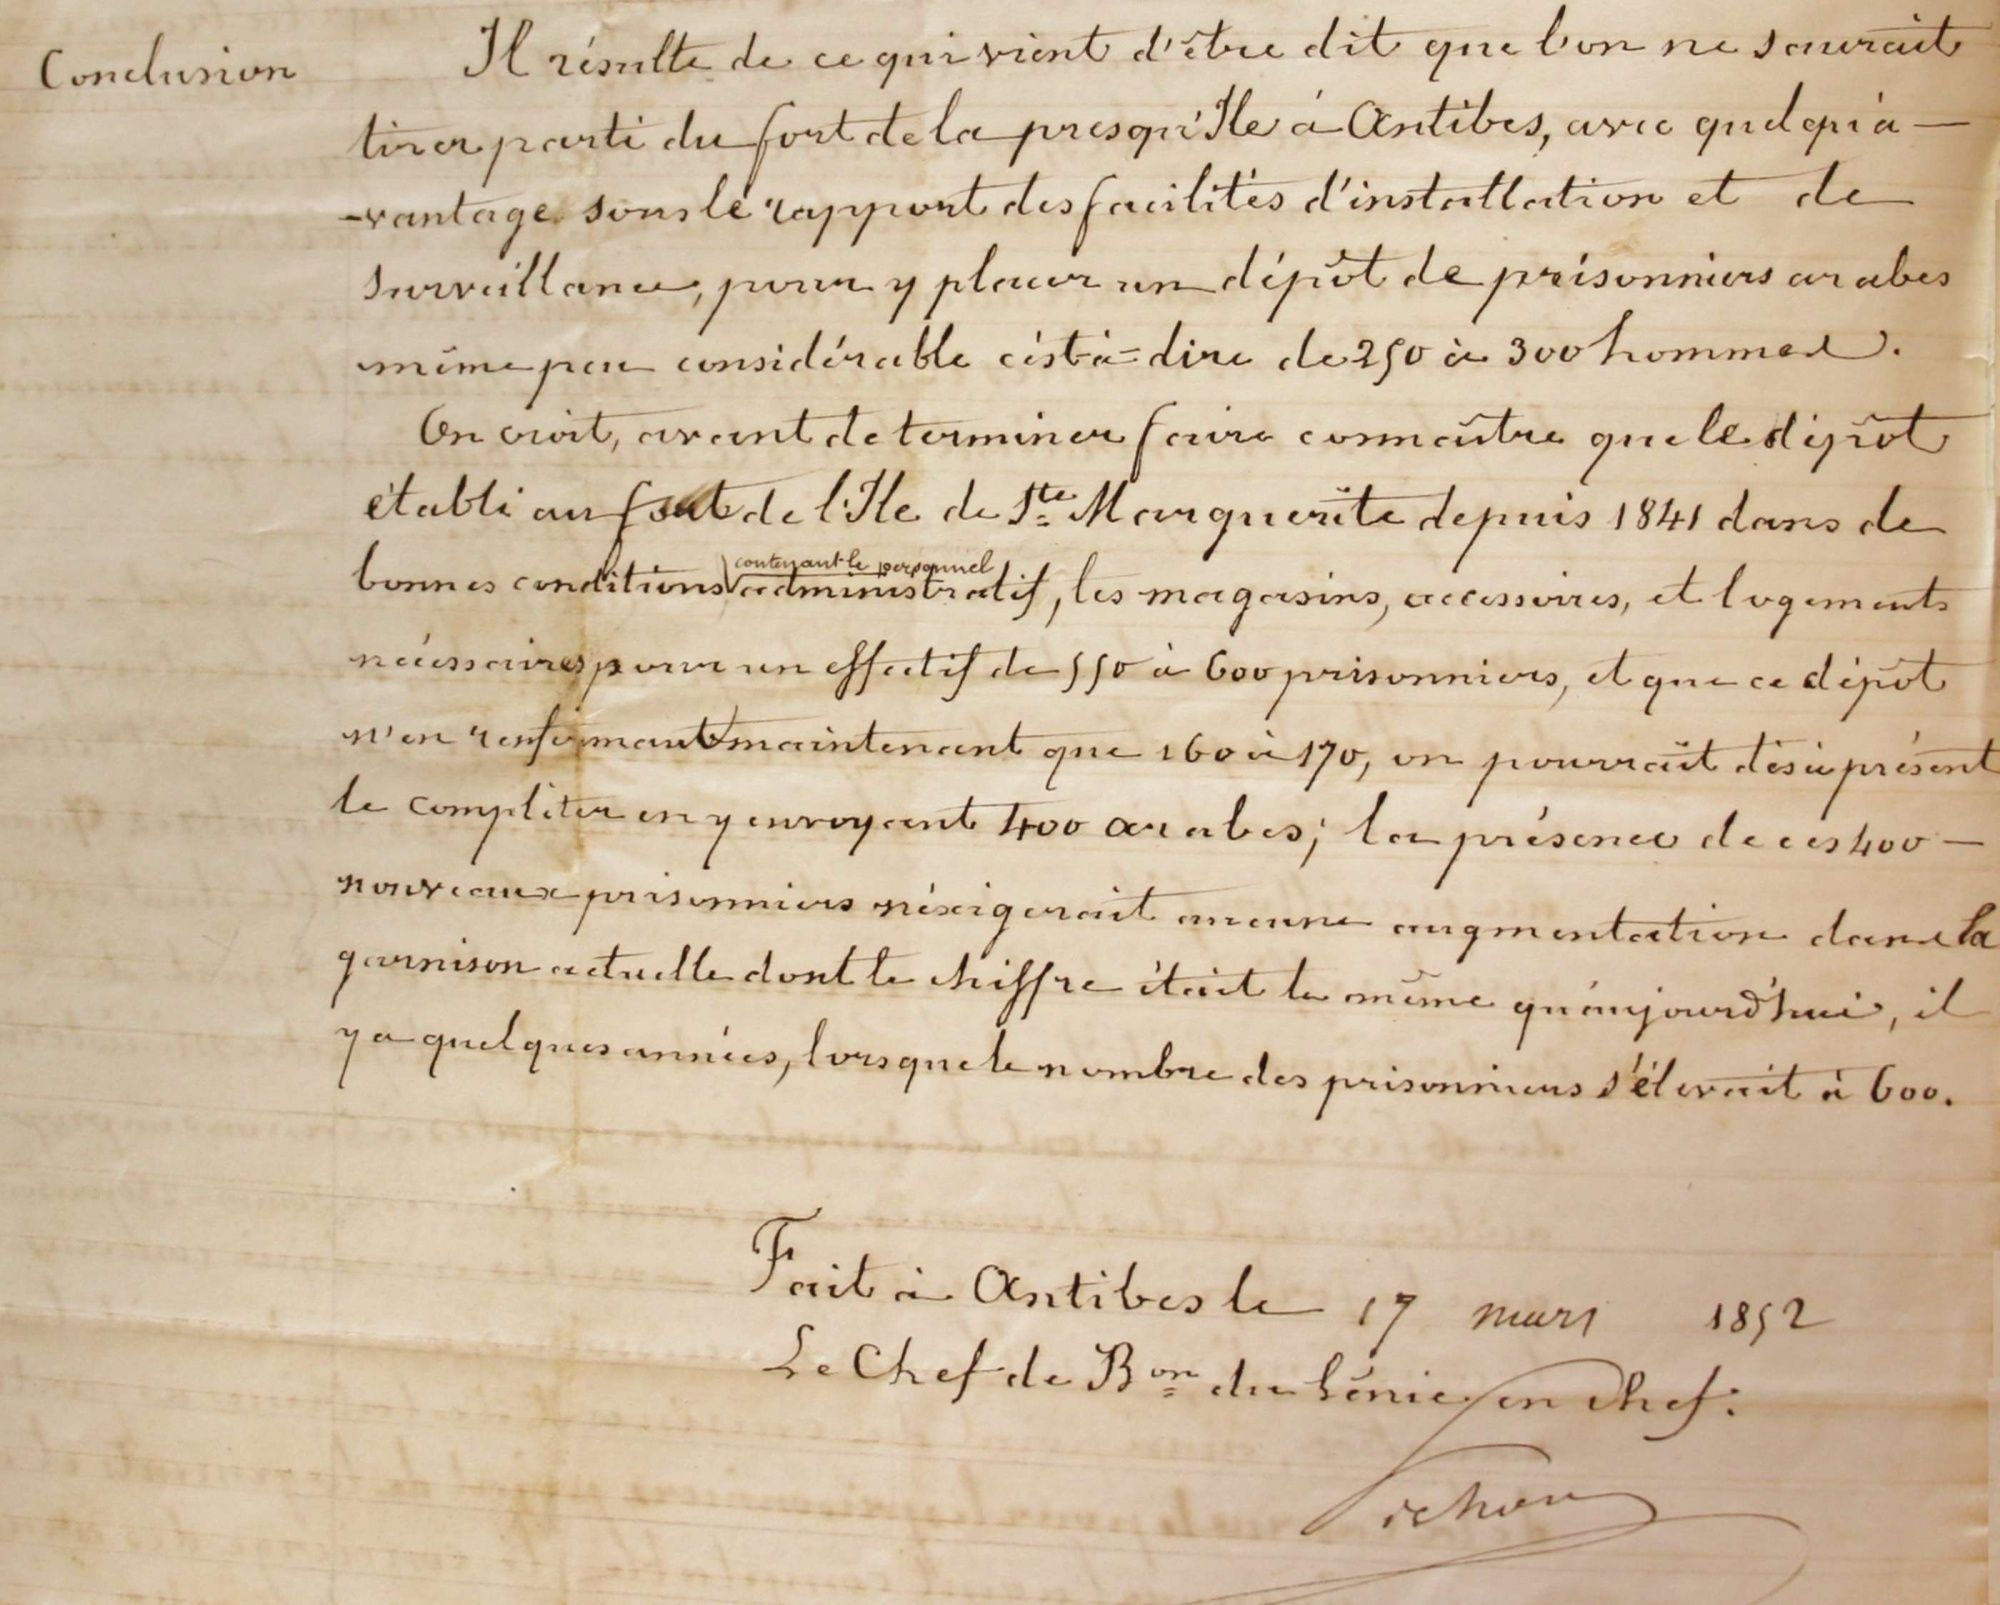 Conclusion
Il résulte de ce qui vient d'être dit que l'on ne saurait
tirer parti du fort de la presqu'Ile à Antibes, avec quelqu'a-
-vantage sous le rapport des facilités d'installation et de
surveillance, pour y placer un dépôt de prisonniers arabes
même peu considérable c'est-à-dire de 250 à 300 hommes.
On croit, avant de terminer faire connaître que le dépôt
établi au fort de l'Ile de Ste Marguerite depuis 1841 dans de
contenant le personnel
bonnes conditions administratif, les magasins, accessoires, et logements
nécessaires pour un effectif de 550 à 600 prisonniers, et que ce dépôt
n'en renfermant maintenant que 160 à 170, on pourrait dès à présent
le compléter en y envoyant 400 arabes; la présence de ces 400 -
nouveaux prisonniers n'éxigerait aucune augmentation dans la
garnison actuelle dont le chiffre était le même qu'aujourd'hui, il
y a quelques années, lorsque le nombre des prisonniers s'élevait à 600.
Fait à Antibes le 17 mars 1852
Le Chef de Bon du Génie en chef.